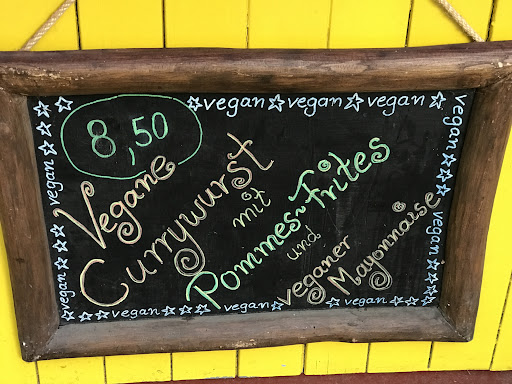 ☆vegan☆vegan☆vegan☆
8,50
Vegane
Currywurst
mit
Pommes~Frites
und
veganer
Mayonnaise
vegan
vegan
vegan
vegan
vegan
vegan
vegan
vegan